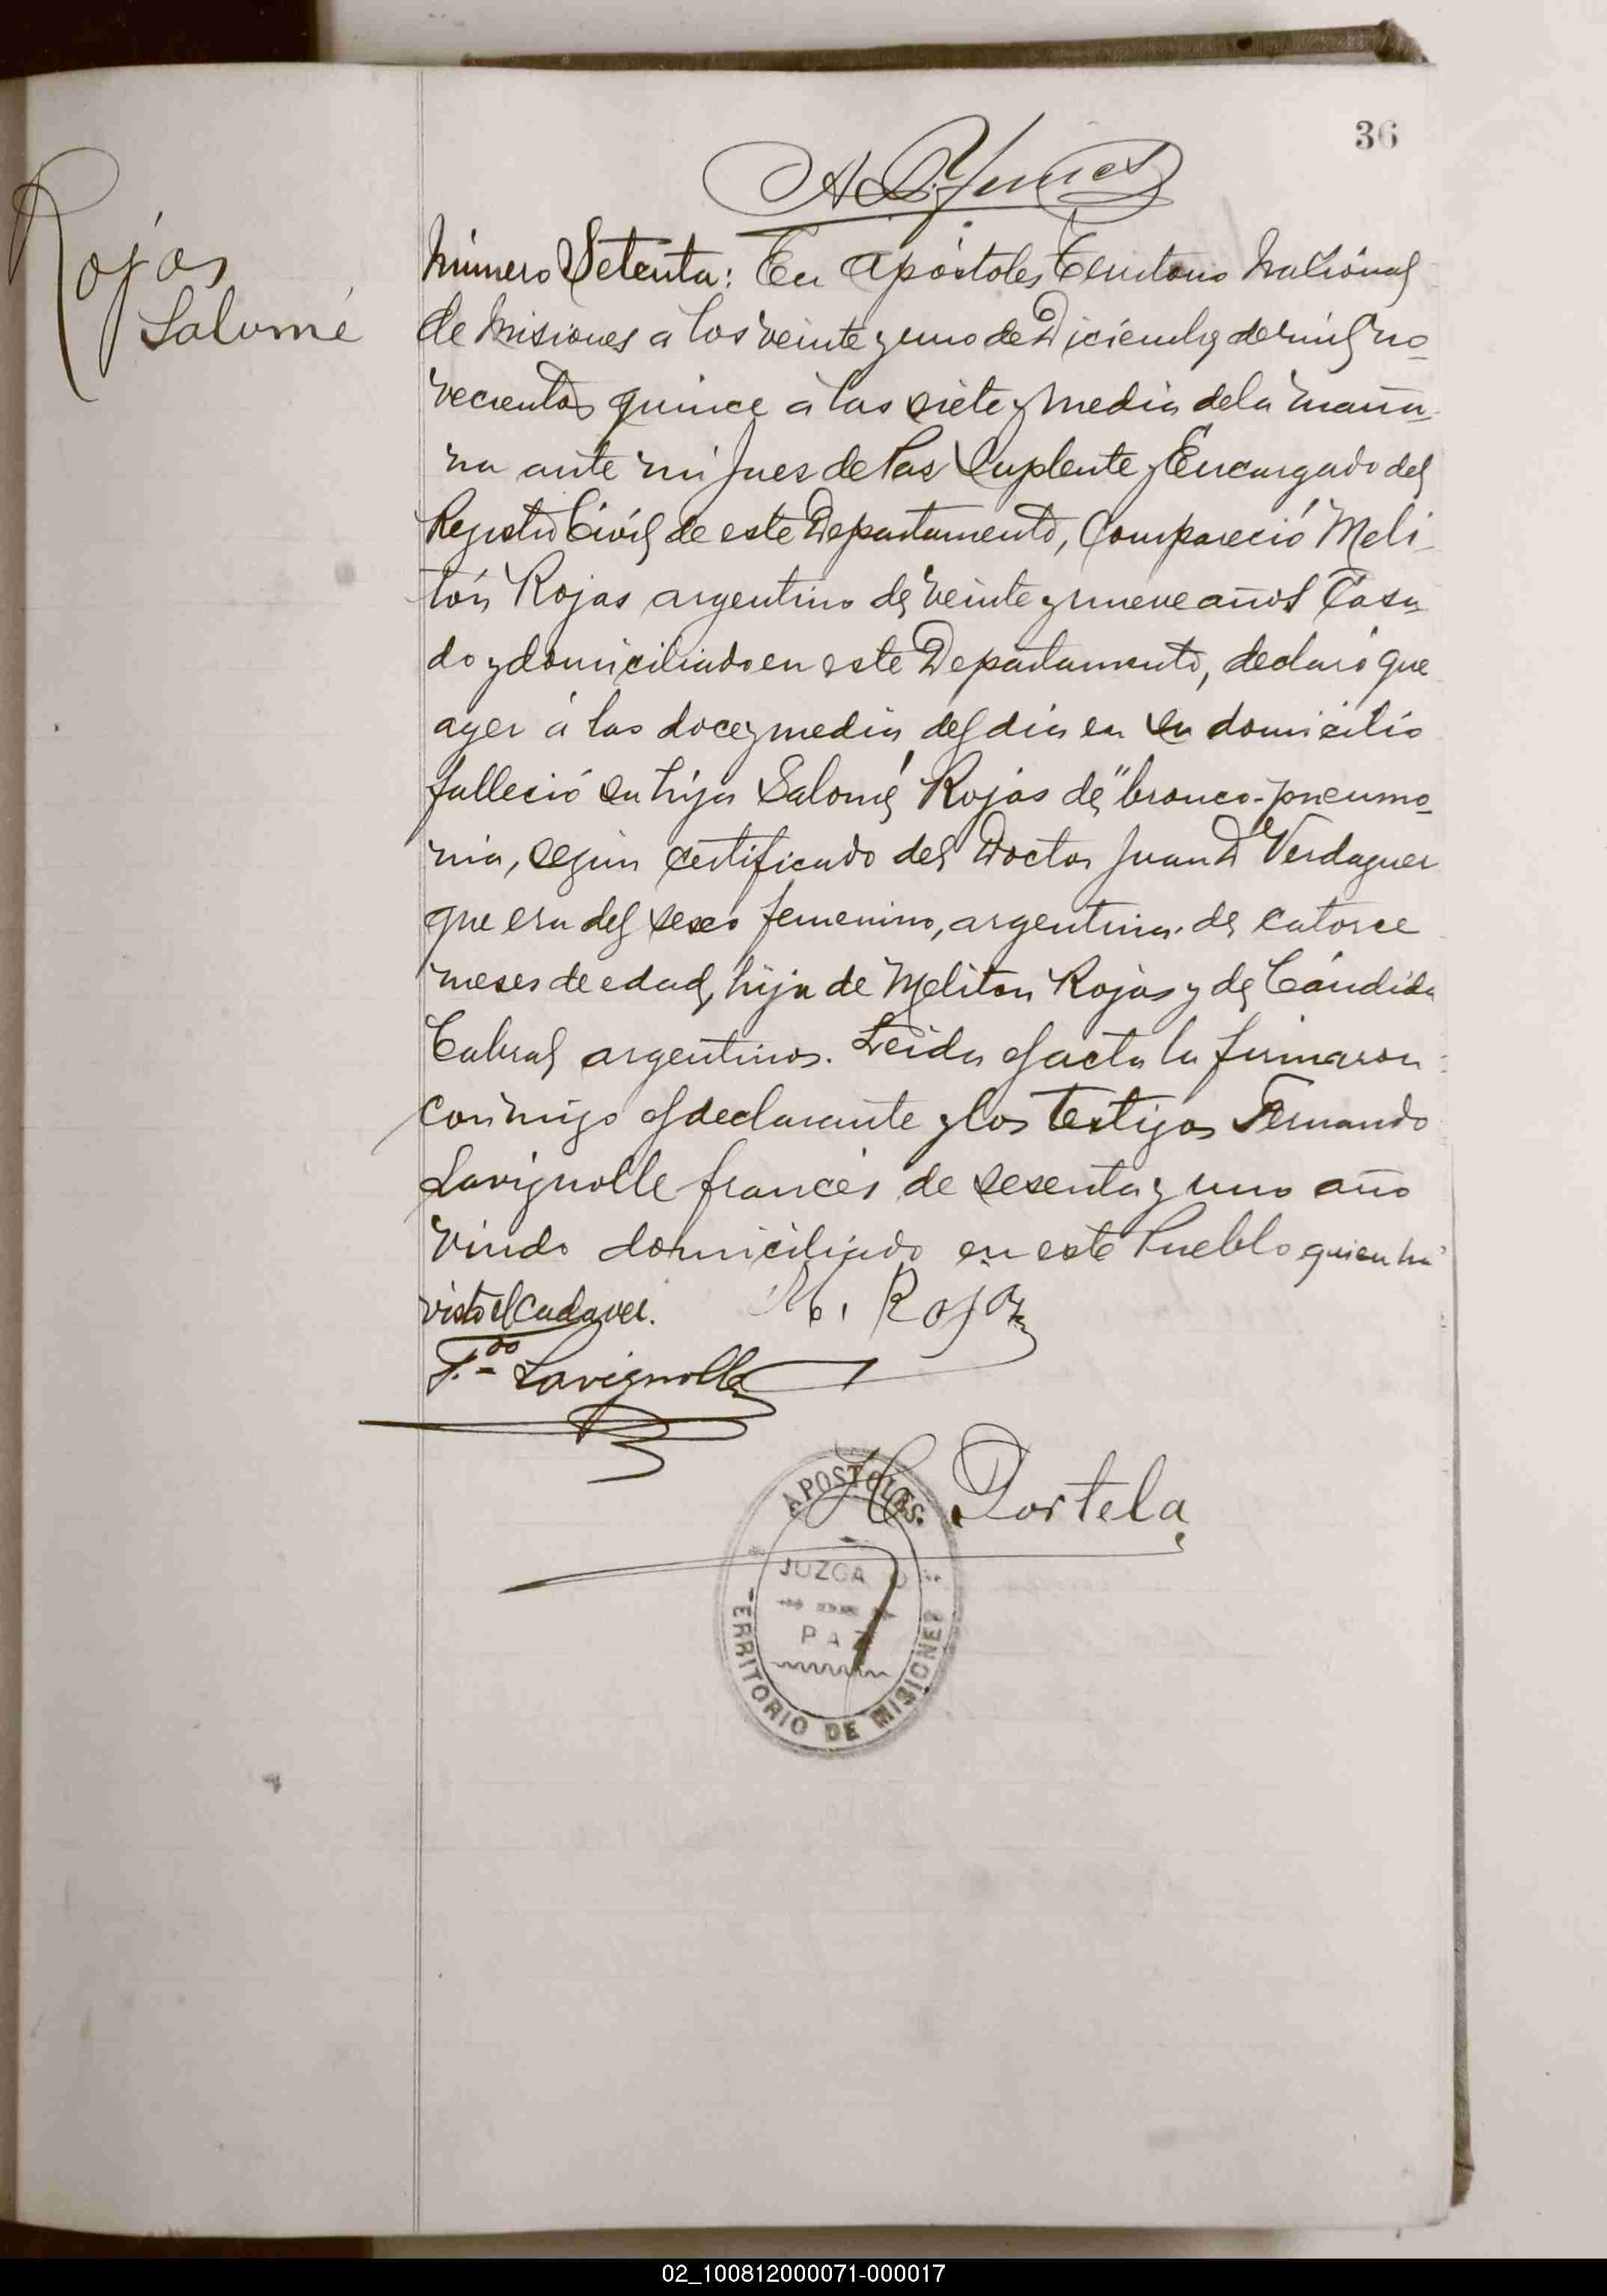 36
Rojas
Salomé
Número Setenta: En Apóstoles Territorio Nacional
de Misiones a los veinte y uno de Diciembre de mil no-
vecientos quince á las siete y media de la maña-
na ante mi Jues de Pas Suplente y Encargado del
Registro Civil de este Departamento, Compareció Meli-
tón Rojas argentino de veinte y nueve años Casa-
do y domiciliado en este Departamento, declaró que
ayer á las doce y media del dia en su domicilio
falleció su hija Salomé Rojas de "bronco-pneumo-
nia, según certificado del Doctor Juan D Verdaguer
que era del sexo femenino, argentina de catorce
meses de edad, hija de Meliton Rojas y de Cándida
Cabral argentinos. Leida el acta la firmaron
conmigo el declarante y los testigos Fernando
Lavignolle francés de sesenta y uno año
viudo domiciliado en este Pueblo quien ha
visto el cadaver. M. Rojas
F.do Lavignolle
Portela
APOSTOLES.
JUZGADO DE
PAZ
TERRITORIO DE MISIONES
02_100812000071-000017